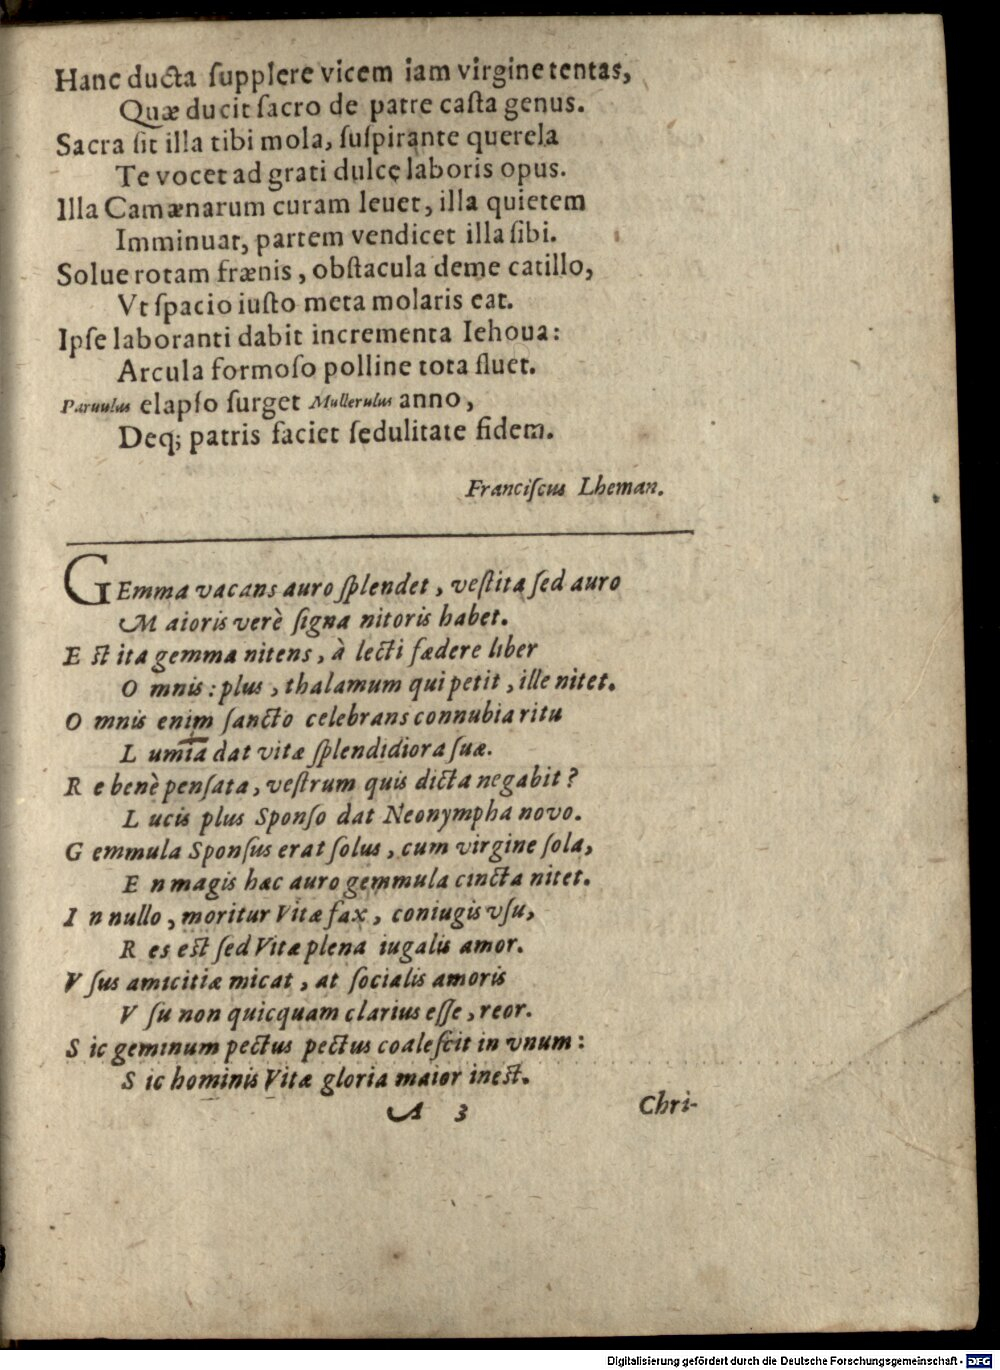 Hanc ducta ſupplere vicem iam virgine tentas,
Quæ ducit ſacro de patre caſta genus.
Sacra ſit illa tibi mola, ſuſpirante querela
Te vocet ad grati dulce laboris opus.
Illa Camænarum curam leuet, illa quietem
Imminuat, partem vendicet illa ſibi.
Solue rotam frænis, obſtacula deme catillo,
Vt ſpacio iuſto meta molaris eat.
Ipſe laboranti dabit incrementa Iehoua:
Arcula formoſo polline tota fluet.
Paruulus elapſo ſurget Mullerulus anno,
Deq; patris faciet ſedulitate fidem.
Franciſcus Lheman.
GEmma vacans auro ſplendet, veſtita ſed auro
M aioris verè ſigna nitoris habet.
E ſt ita gemma nitens, à lecti fædere liber
O mnis: plus, thalamum qui petit, ille nitet.
O mnis enim ſancto celebrans connubia ritu
L umīa dat vitæ ſplendidiora ſuæ.
R e benè penſata, veſtrum quis dicta negabit?
L ucis plus Sponſo dat Neonympha novo.
G emmula Sponſus erat ſolus, cum virgine ſola,
E n magis hac auro gemmula cincta nitet.
I n nullo, moritur Vitæ fax, coniugis vſu,
R es eſt ſed Vitæ plena iugalis amor.
V ſus amicitiæ micat, at ſocialis amoris
V ſu non quicquam clarius eſſe, reor.
S ic geminum pectus pectus coaleſcit in vnum:
S ic hominis Vitæ gloria maior ineſt.
A 3
Chri-
Digitalisierung gefördert durch die Deutsche Forschungsgemeinschaft - DFG